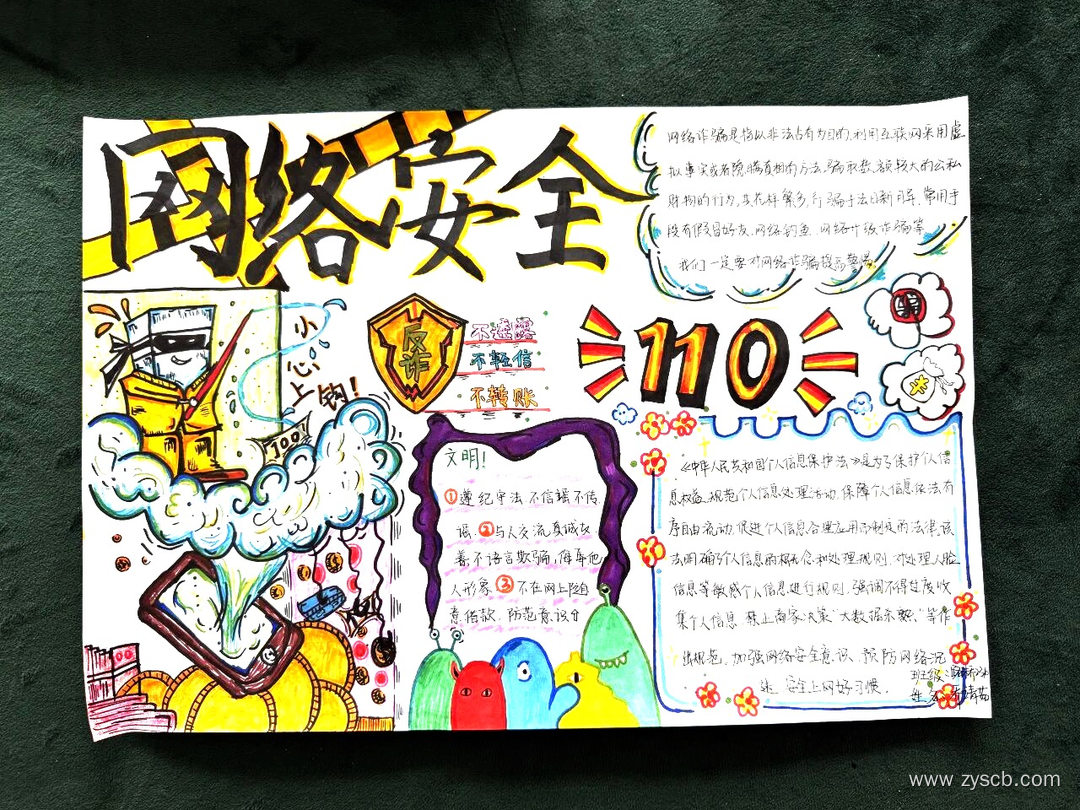 网络安全
网络诈骗是指以非法占有为目的,利用互联网采用虚
拟事实或者隐瞒真相的方法,骗取数额较大的公私
财物的行为,其花样繁多,行骗手法日新月异,常用手
段有假冒好友、网络钓鱼、网络升级诈骗等
我们一定要对网络诈骗提高警惕
小心上钩!
100
反诈
不透露
不轻信
不转账
110
文明!
①遵纪守法 不信谣不传
谣 ②与人交流真诚友
善,不语言欺骗,侮辱他
人形象 ③不在网上随
意借款 防范意识
《中华人民共和国个人信息保护法》是为了保护个人信
息权益,规范个人信息处理活动,保障个人信息依法有
序自由流动,促进个人信息合理应用而制定的法律,该
法明确了个人信息的概念和处理规则,对处理人脸
信息等敏感个人信息进行规则,强调不得过度收
集个人信息 禁止商家决策"大数据杀熟"等作
出规范,加强网络安全意识,预防网络沉
迷 安全上网好习惯.
班级:
姓名
www.zyscb.com